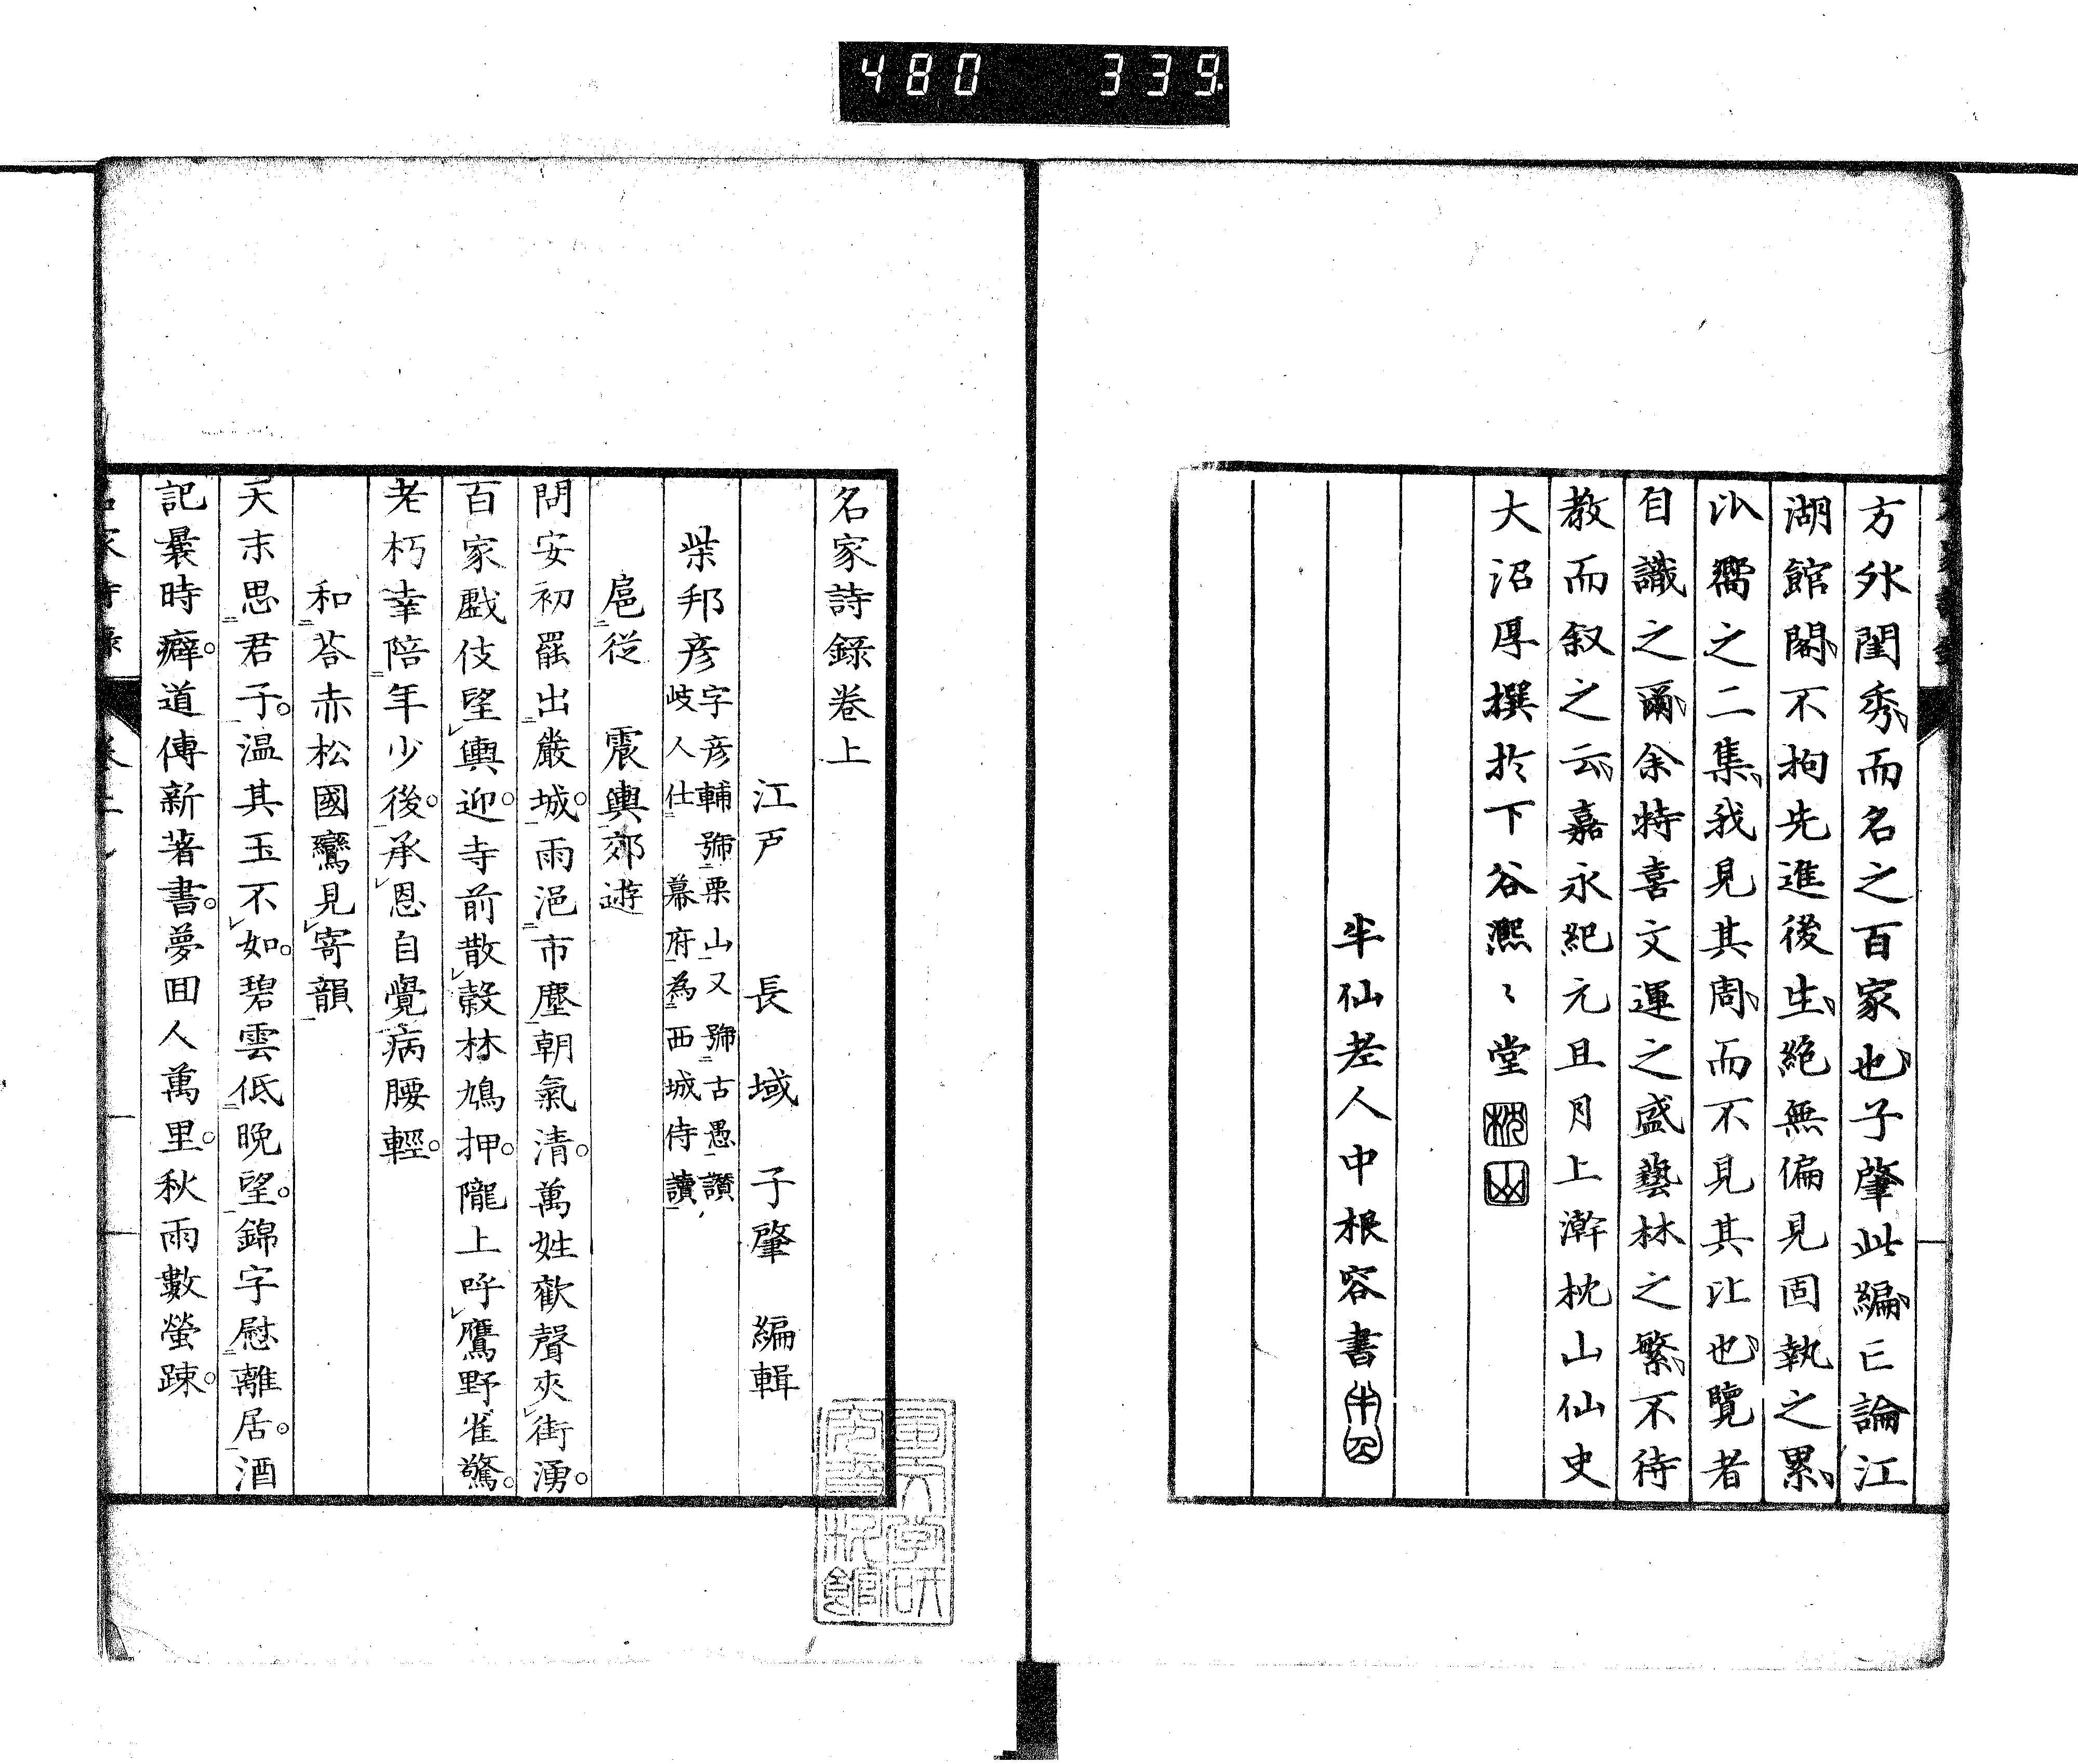 480 339
方外閨秀而名之百家也子肇此編亡論江
湖館閣不拘先進後生絕無偏見固執之累
以觿之二集我見其周而不見其比也覽者
自識之爾余特喜文運之盛藝林之繁不待
教而叙之云嘉永紀元且月上澣枕山仙史
大沼厚撰於下谷凞〻堂
半仙老人中根容書
名家詩錄卷上
江戶 長 域 子肇 編輯
柴邦彥字彥輔號栗山又號古愚讚
岐人仕 幕府為西城侍讀
扈從 震輿郊遊
問安初罷出嚴城雨浥市塵朝氣清萬姓歡聲夾街湧
百家戲伎望輿迎寺前散穀林鳩押隴上呼鷹野雀驚
老朽幸陪年少後承恩自覺病腰輕
和荅赤松國鸞見寄韻
天末思君子溫其玉不如碧雲低晚望錦字慰離居酒
記曩時癖道傳新著書夢回人萬里秋雨數螢踈